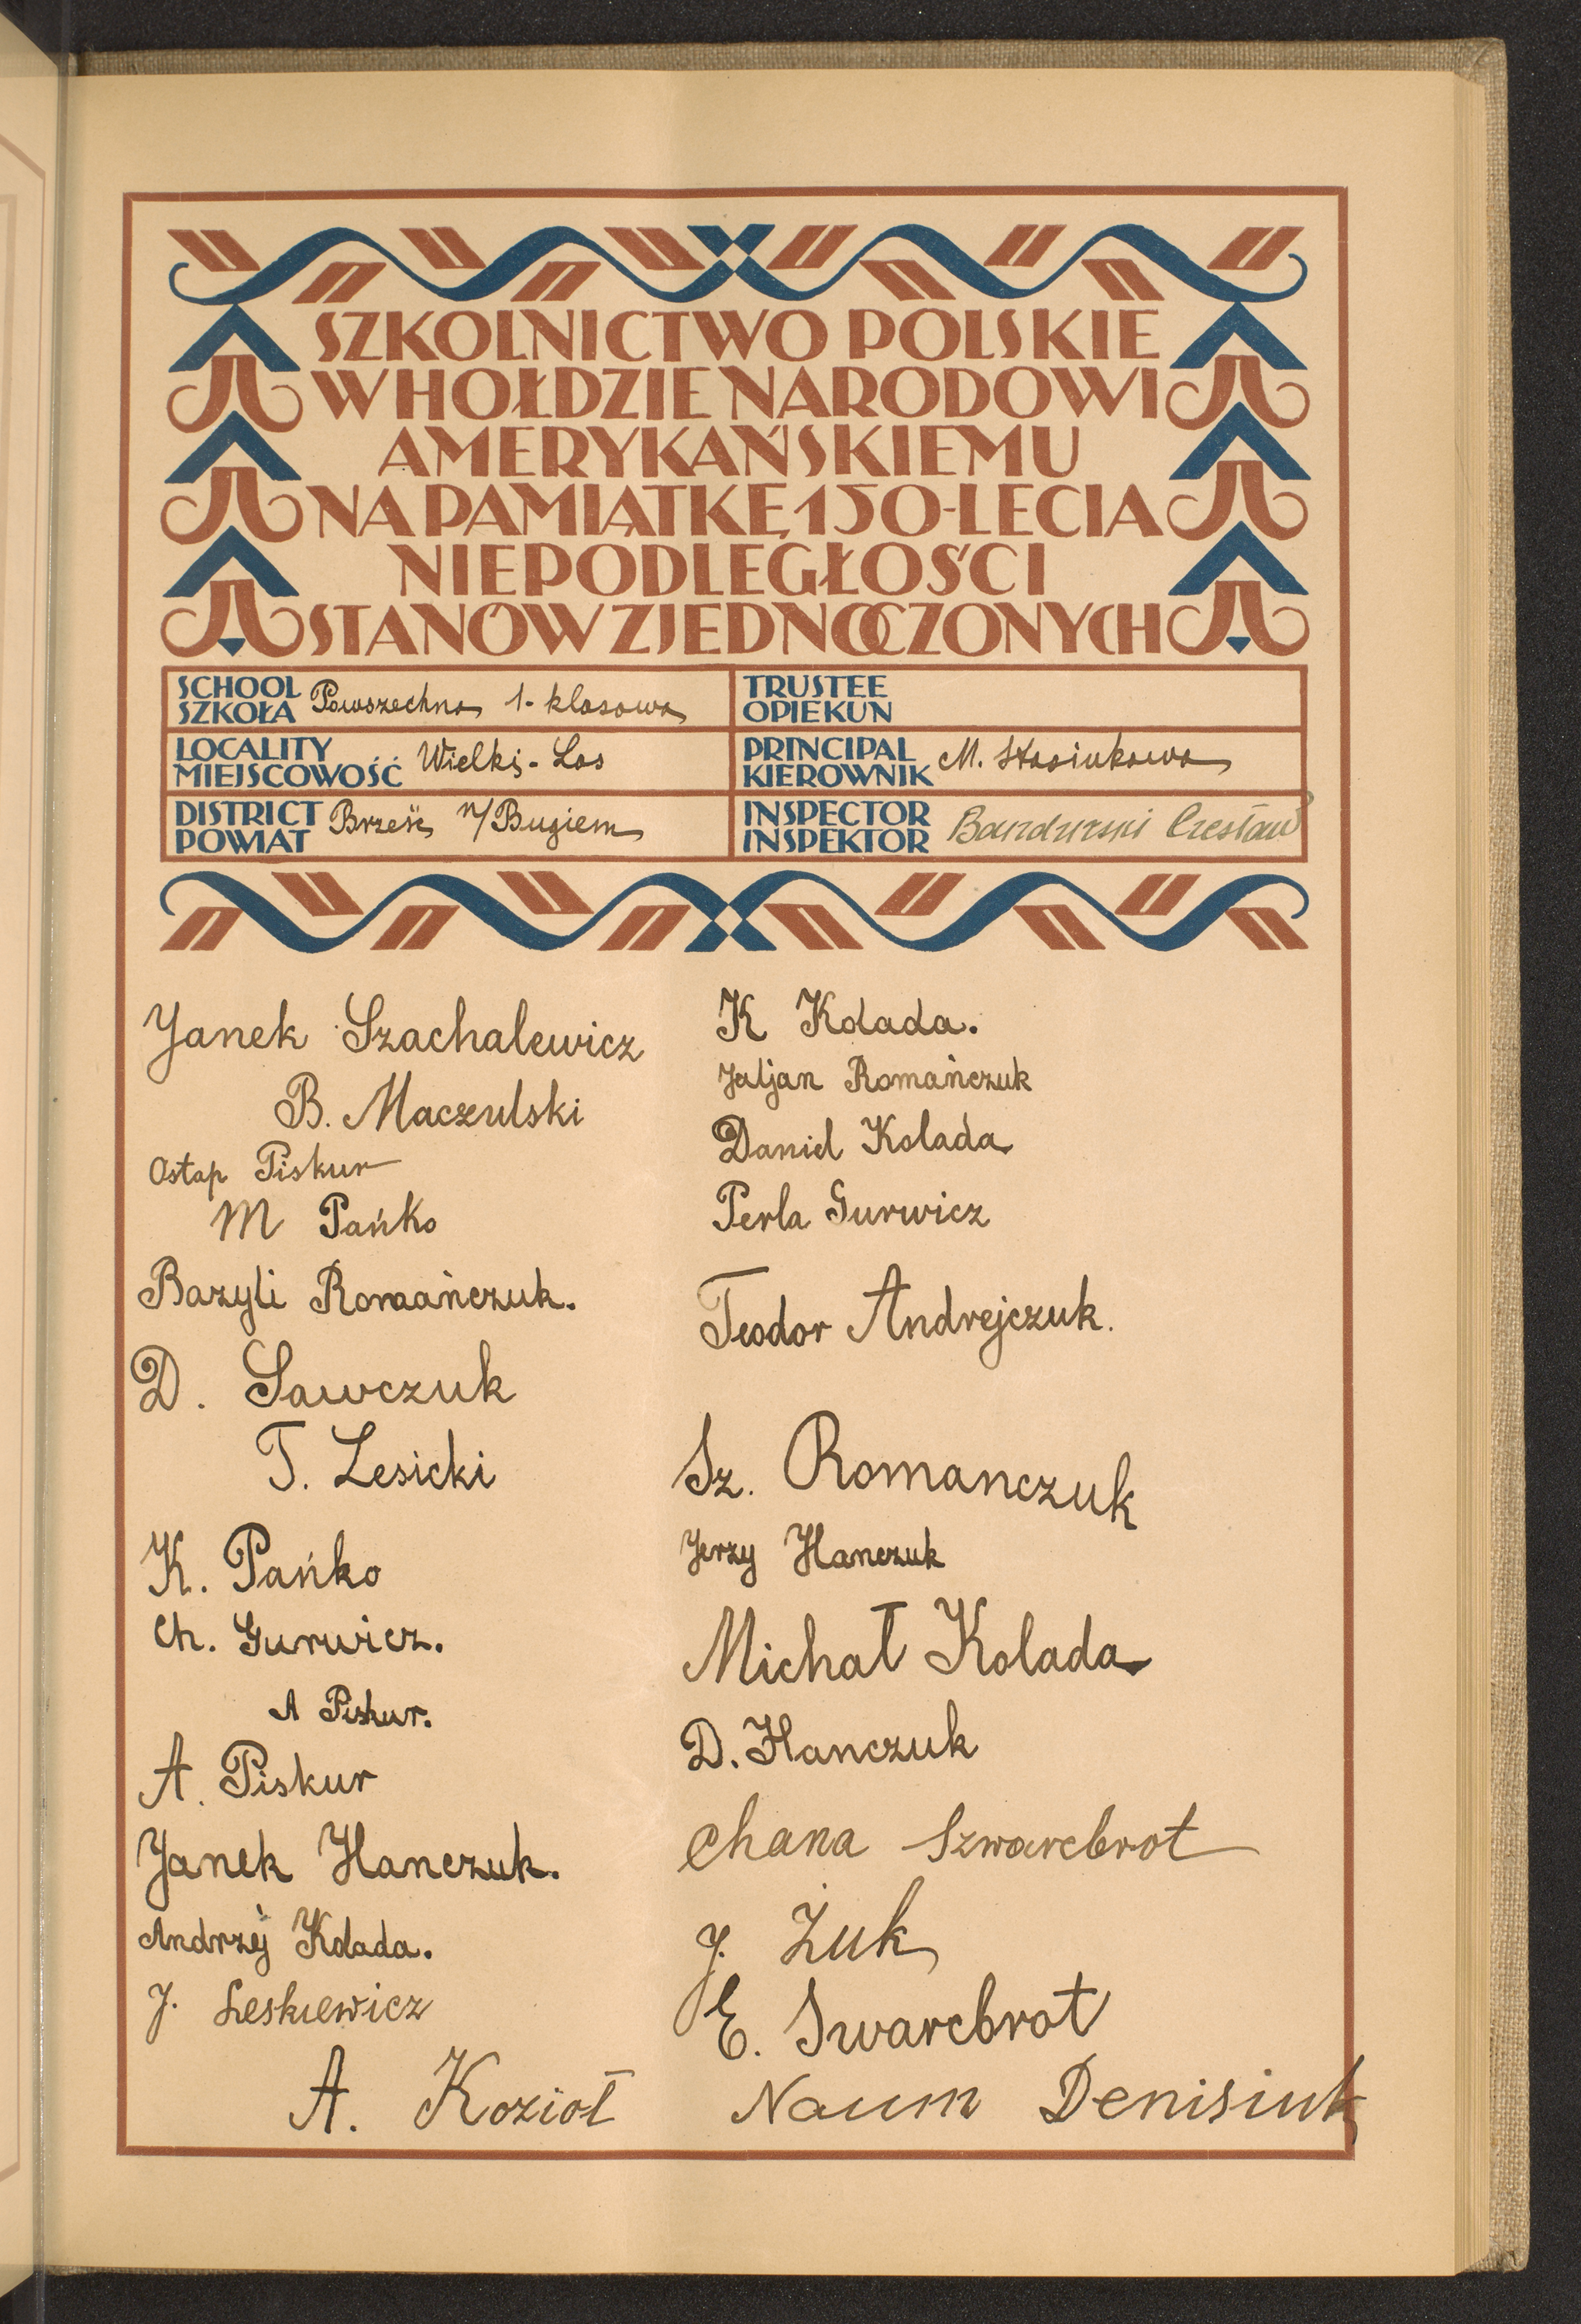 SZKOLNICTWO POLSKIE
W HOŁDZIE NARODOWI
AMERYKAŃSKIEMU
NA PAMIĄTKĘ 150-LECIA
NIEPODLEGŁOŚCI
STANÓW ZJEDNOCZONYCH
SCHOOL
SZKOŁA Powszechna 1-klasowa
TRUSTEE
OPIEKUN
LOCALITY
MIEJSCOWOŚĆ Wielki-Las
PRINCIPAL
KIEROWNIK M. Stasiukowa
DISTRICT
POWIAT Brześć n/Bugiem
INSPECTOR
INSPEKTOR Bandurski Czesław
Janek Szachalewicz
B. Maczulski
Ostap Piskur
M Pańko
Bazyli Romańczuk.
D. Sawczuk
T. Lesicki
K. Pańko
Ch. Gurwicz.
A Piskur.
A. Piskur
Janek Hanczuk.
Andrzej Kolada.
J. Leskiewicz
A. Kozioł
K Kolada.
Juljan Romańczuk
Daniel Kolada
Perla Gurwicz
Teodor Andrejczuk.
Sz. Romanczuk
Jerzy Hanczuk
Michał Kolada
D. Hanczuk
Chana Szwarcbrot
J. Żuk
E. Swarcbrot
Naum Denisiuk